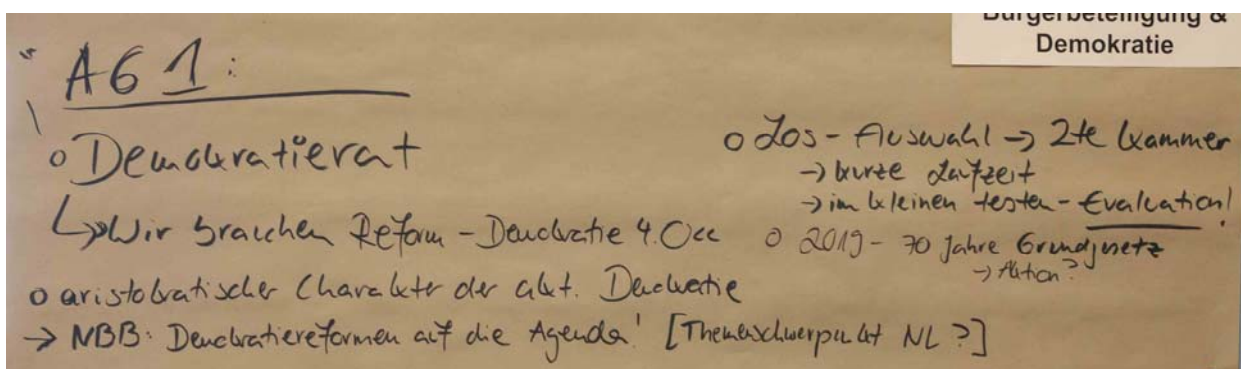 Bürgerbeteiligung &
Demokratie
AG 1:
o Demokratierat
↳ Wir brauchen Reform - Demokratie 4.0
o aristokratischer Charakter der akt. Demokratie
→ NBB: Demokratiereformen auf die Agenda! [Themenschwerpunkt NL ?]
o Los - Auswahl → 2te Kammer
→ kurze Laufzeit
→ im kleinen testen - Evaluation!
o 2019 - 70 Jahre Grundgesetz
→ Aktion?